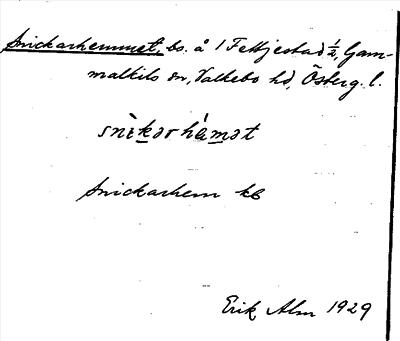 Snickarhemmet, bs. å 1 Fettjestad ½, Gam-
malkils sn, Valkebo hd, Österg. l.
snìkərhȧ́mət
Snickarhem kb
Erik Alm 1929